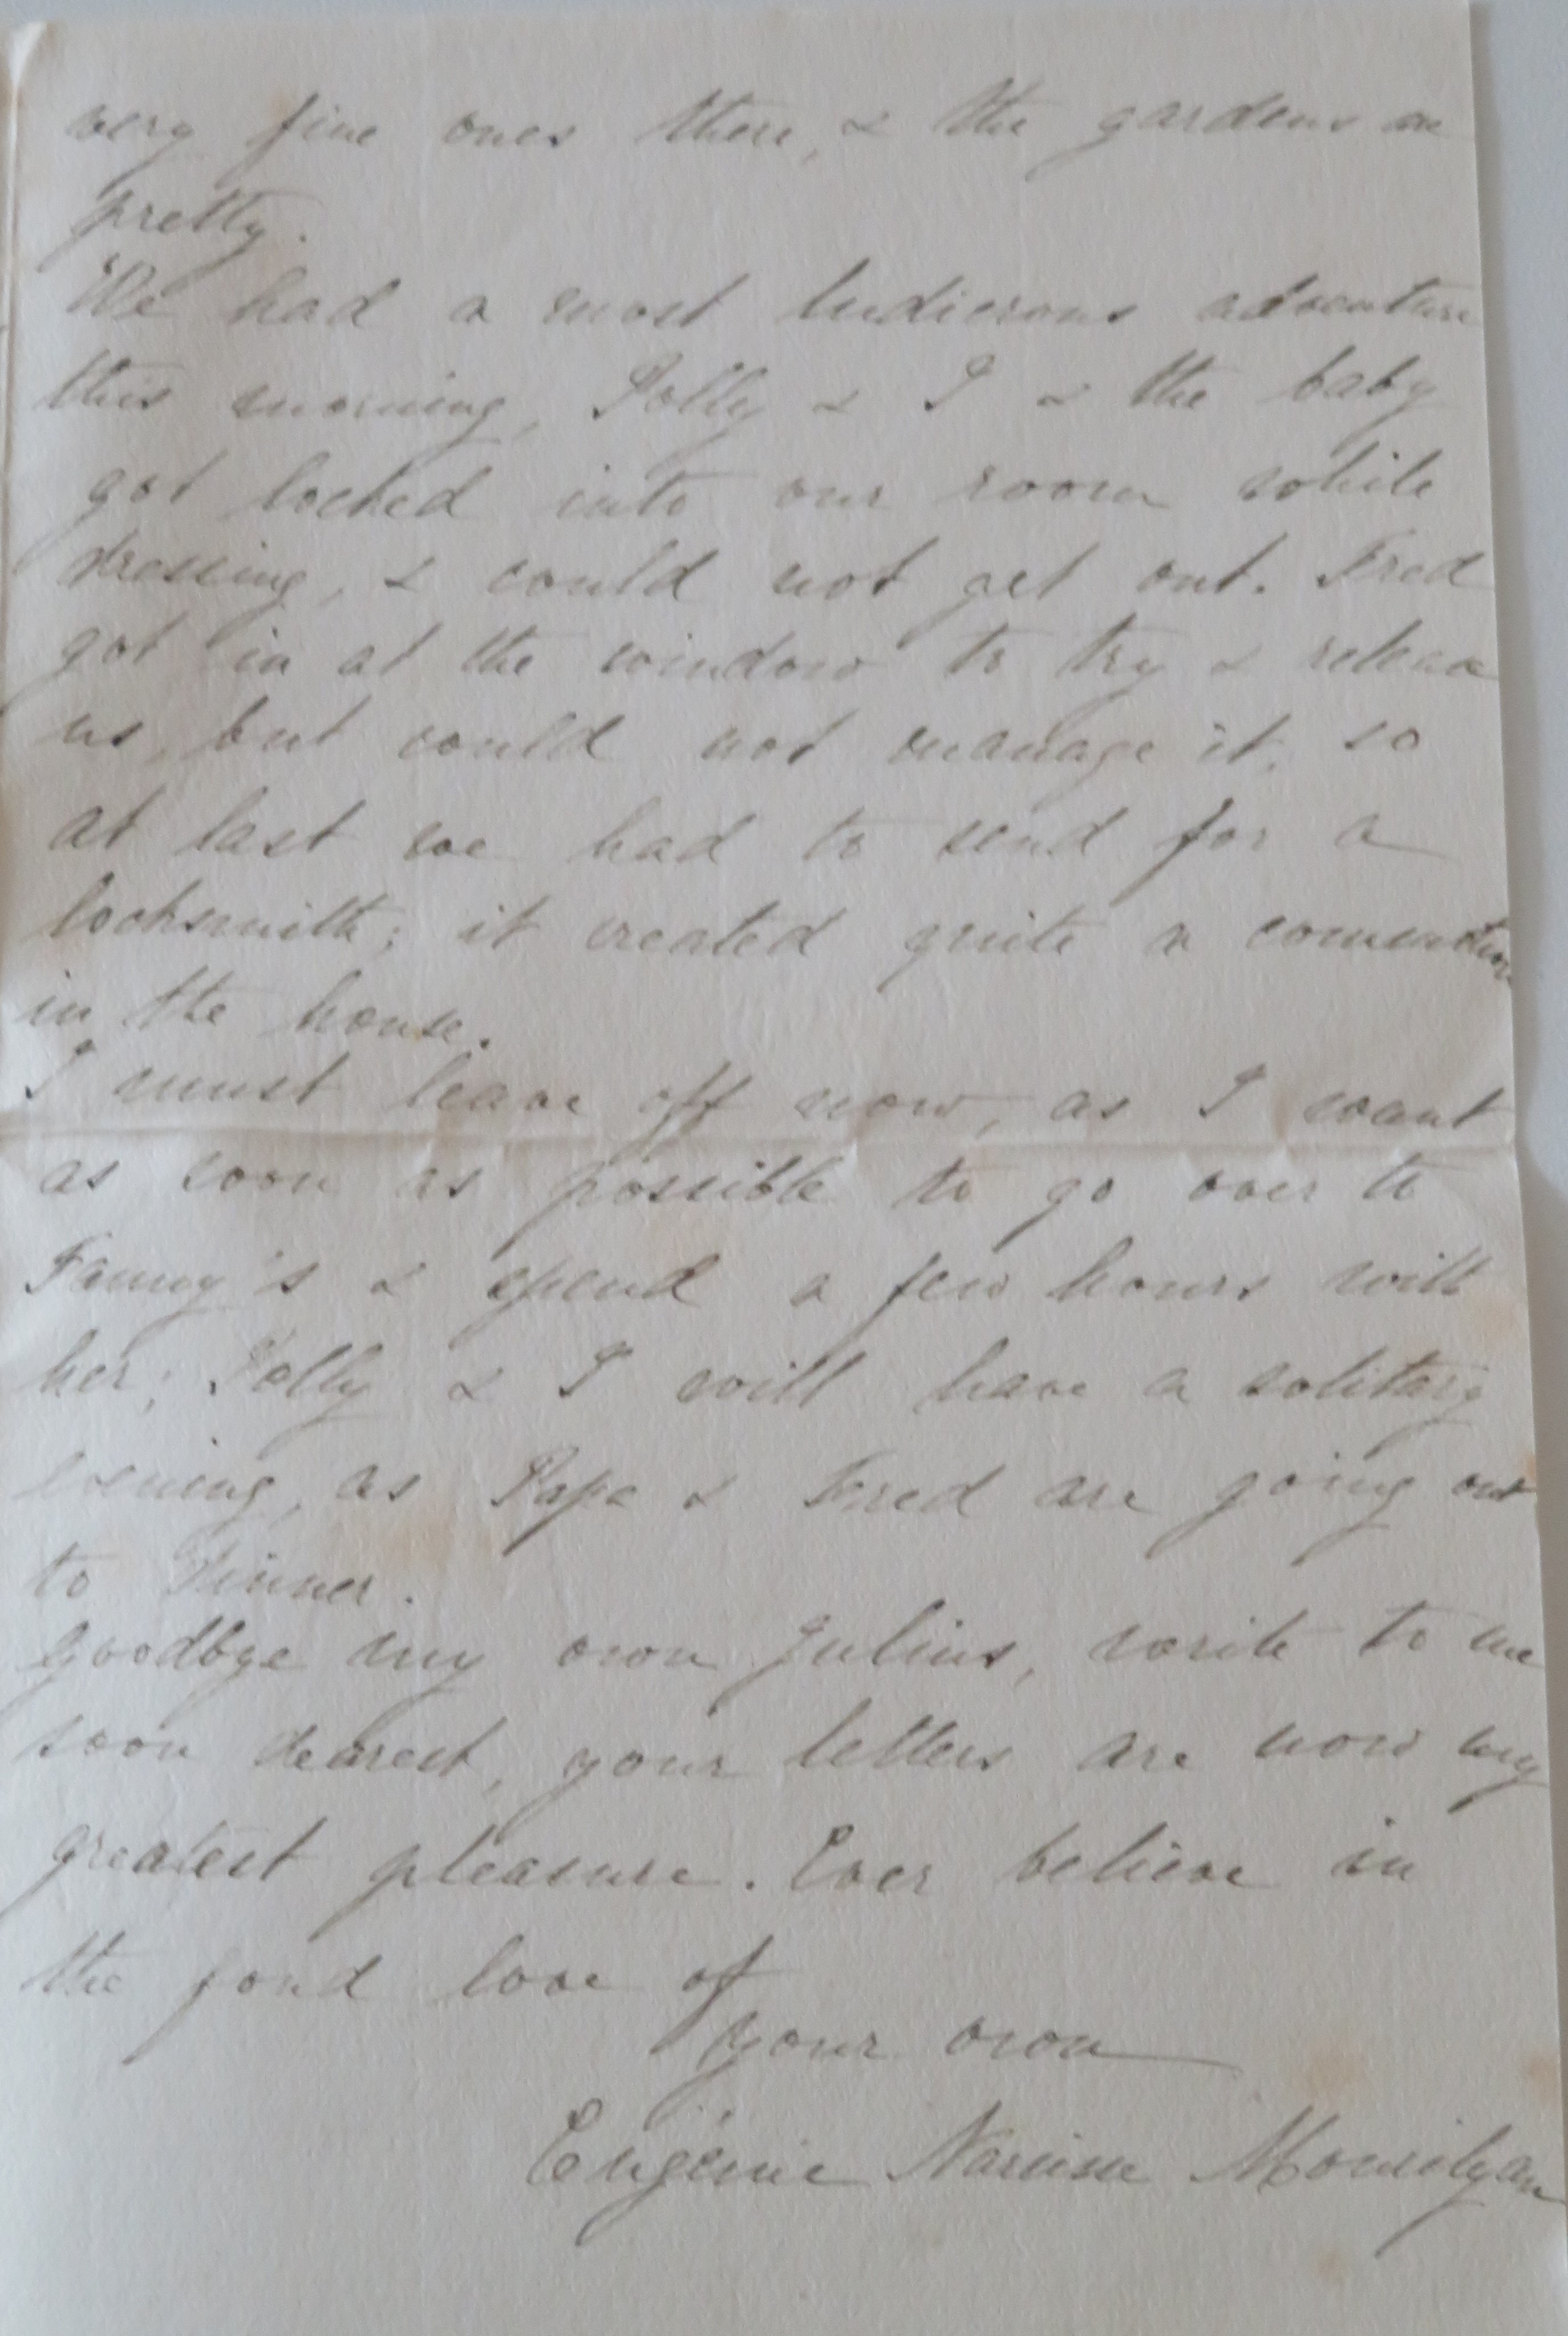 very fine ones there, & the gardens are
pretty.
We had a most ludicrous adventure
this morning, Polly & I & the baby
got locked into our room while
dressing, & could not get out. Fred
got in at the window to try & release
us, but could not manage it, so
at last we had to send for a
locksmith; it created quite a commotion
in the house.
I must leave off now, as I want
as soon as possible to go over to
Fanny's & spend a few hours with
her; Polly & I will have a solitary
evening, as Papa & Fred are going out
to dinner.
Goodbye my own Julius, write to me
soon dearest, your letters are now my
greatest pleasure. Ever believe in
the fond love of
your own
Eugénie Narcisse